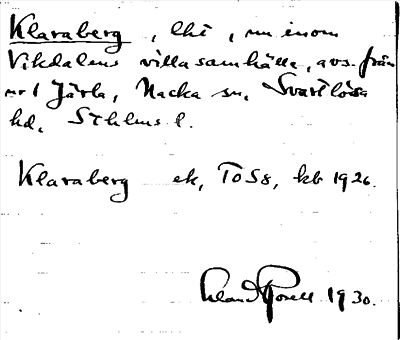 Klaraberg, lht, nu inom
Vikdalens villasamhälle, avs. från
nr 1 Järla, Nacka sn, Svartlösa
hd, Sthlms l.
Klaraberg ek, ToS8, kb 1926.
1930.